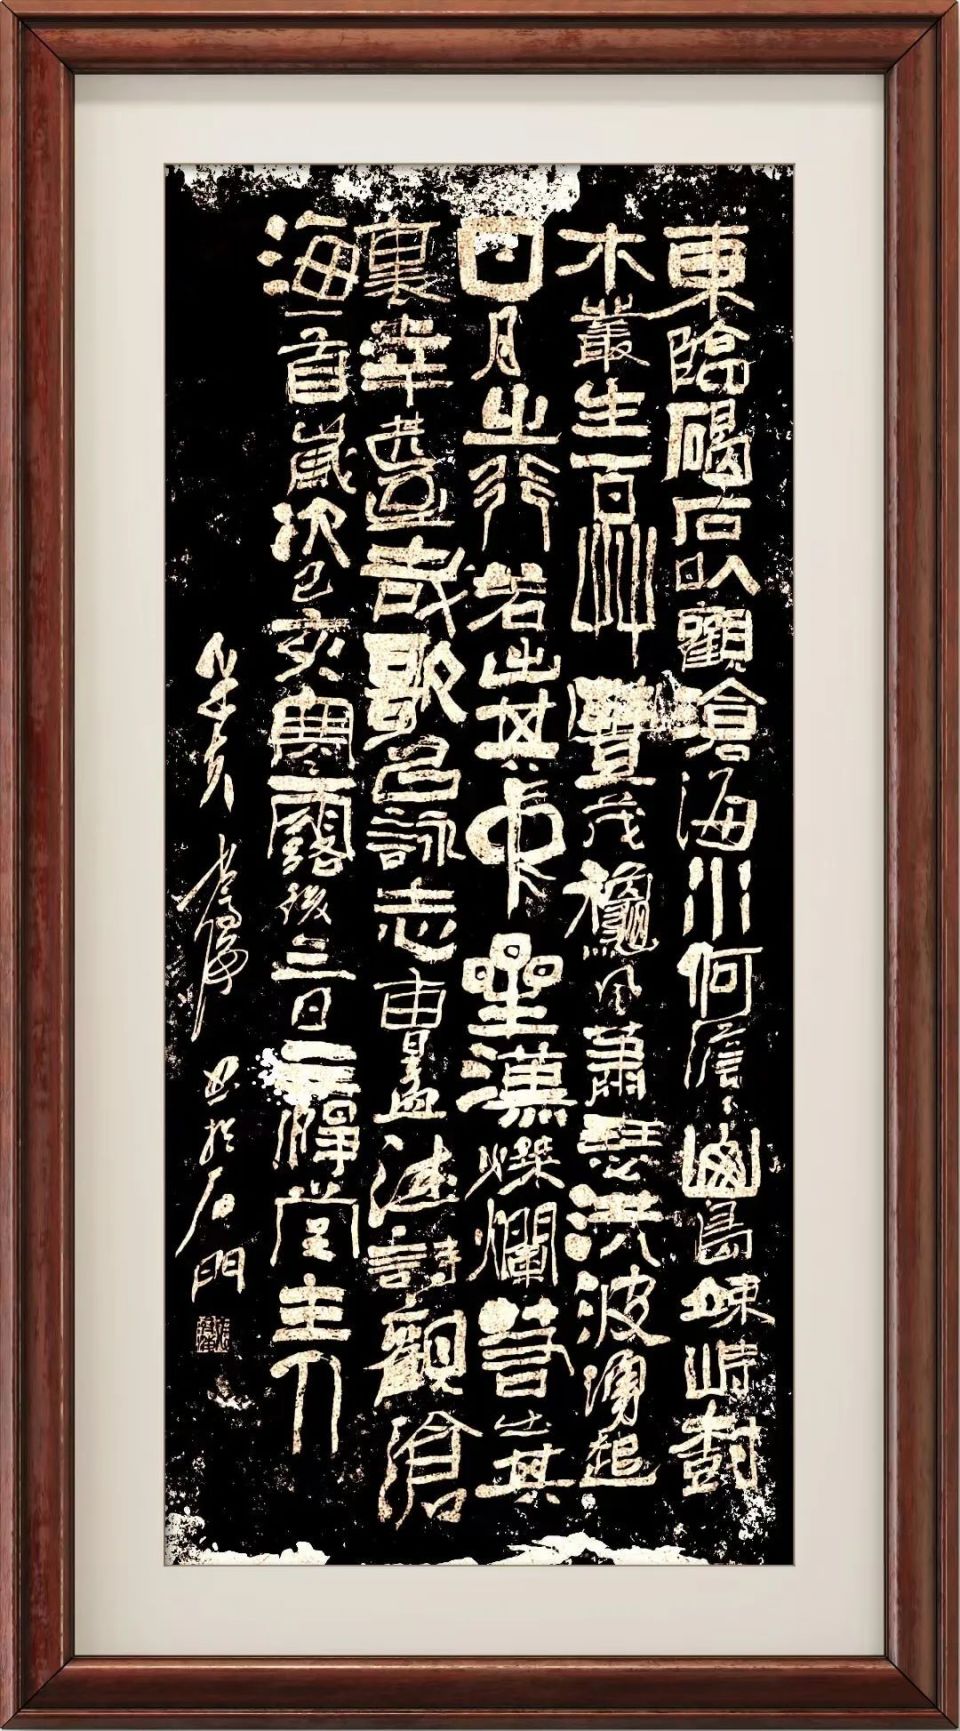 東臨碣石以觀滄海水何澹〻山島竦峙樹
木叢生百艸豐茂穐風蕭瑟洪波湧起
日月之行若出其中星漢燦爛若出其
裏幸甚至哉歌以詠志曹孟德詩觀滄
海一首歲次己亥寒露後三日一得堂主人
於石門